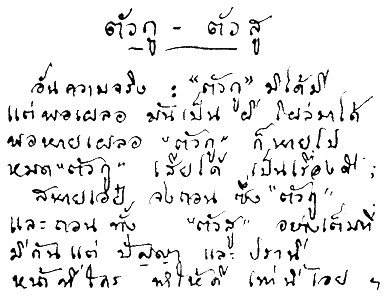 ตัวกู - ตัวสู
อันความจริง : "ตัวกู" มิได้มี
แต่พอเผลอ มันเป็น ผี โผล่มาได้
พอหายเผลอ "ตัวกู" ก็หายไป
หมด "ตัวกู" เสียได้ เป็นเรื่องดี ;
สหายเอ๋ย จงถอน ซึ่ง "ตัวกู"
และถอน ทั้ง "ตัวสู" อย่างเต็มที่
มีกันแต่ ปัญญา และ ปรานี
หน้าที่ใคร ทำให้ดี เท่านี้เอย ฯ